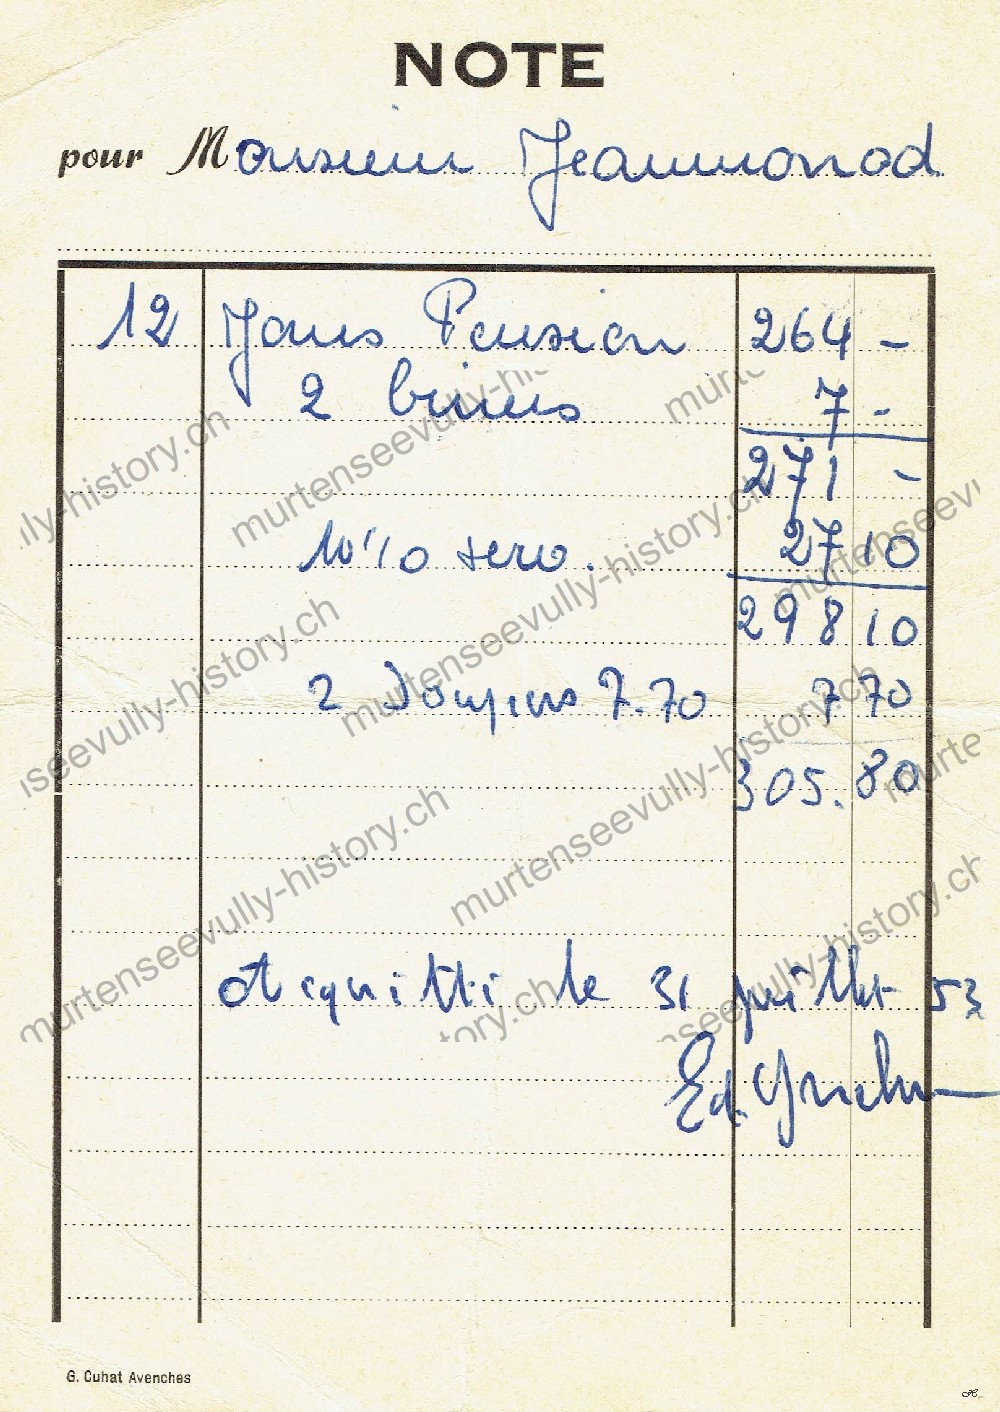 NOTE
pour Monsieur Jeanmonod
12 Jours Pension 264 -
2 7 -
271 -
10% serv. 27 10
298 10
2 7.70 7 70
305.80
Acquitté le 31 juillet 53
Ed.
G. Cuhat Avenches
murtenseevully-history.ch